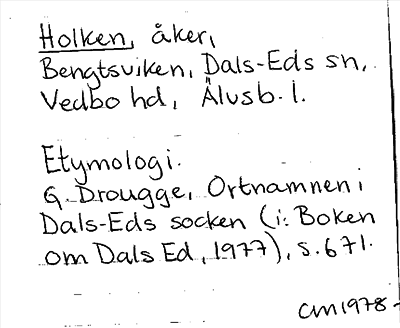 Holken, åker,
Bengtsviken, Dals-Eds sn,
Vedbo hd, Älvsb. l.
Etymologi.
G. Drougge, Ortnamnen i
Dals-Eds socken (i: Boken
om Dals Ed, 1977), s. 671.
CM 1978